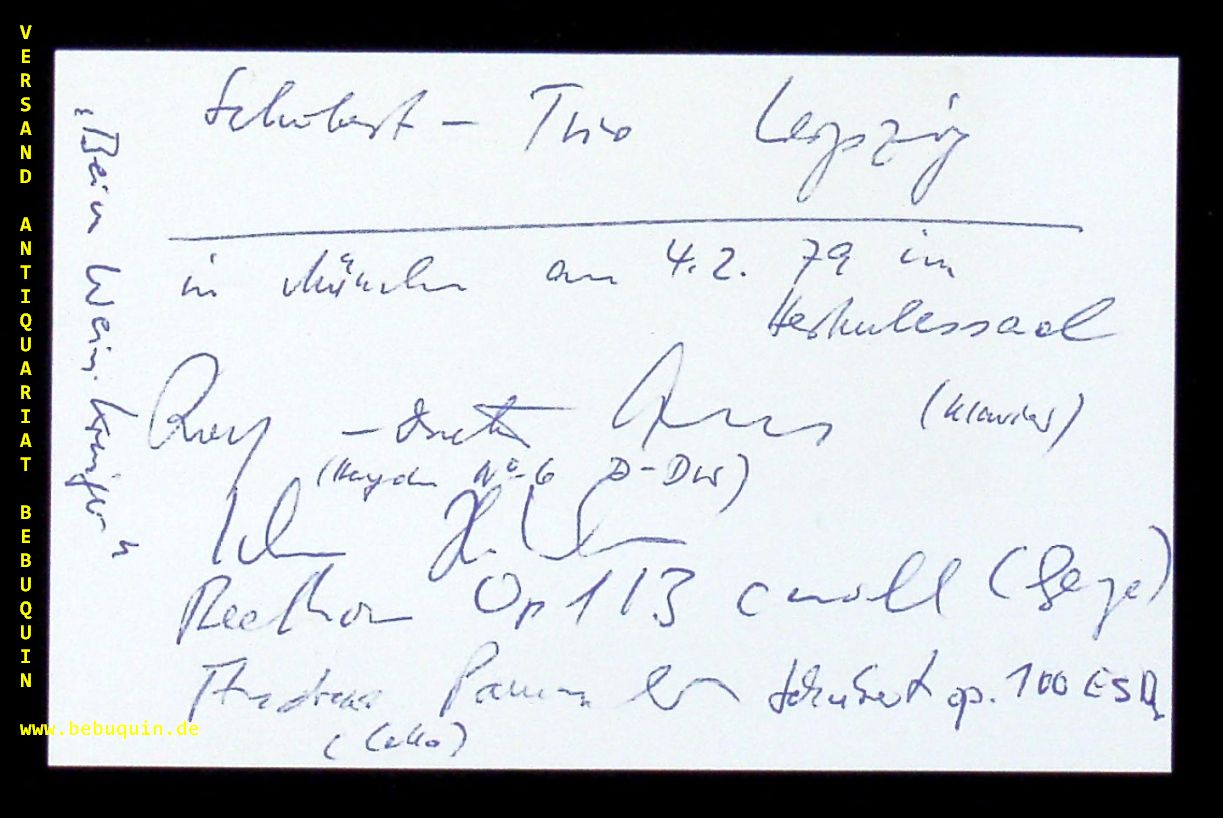 VERSAND ANTIQUARIAT BEBUQUIN
www.bebuquin.de
Schubert - Trio Leipzig
in München am 4.2. 79 im
Herkulessaal
(Klavier)
(Haydn No 6 D-Dur)
Beethoven Op 1/3 c moll (Geige)
Schubert op. 100 Es D
(Cello)
"Beim Wein.